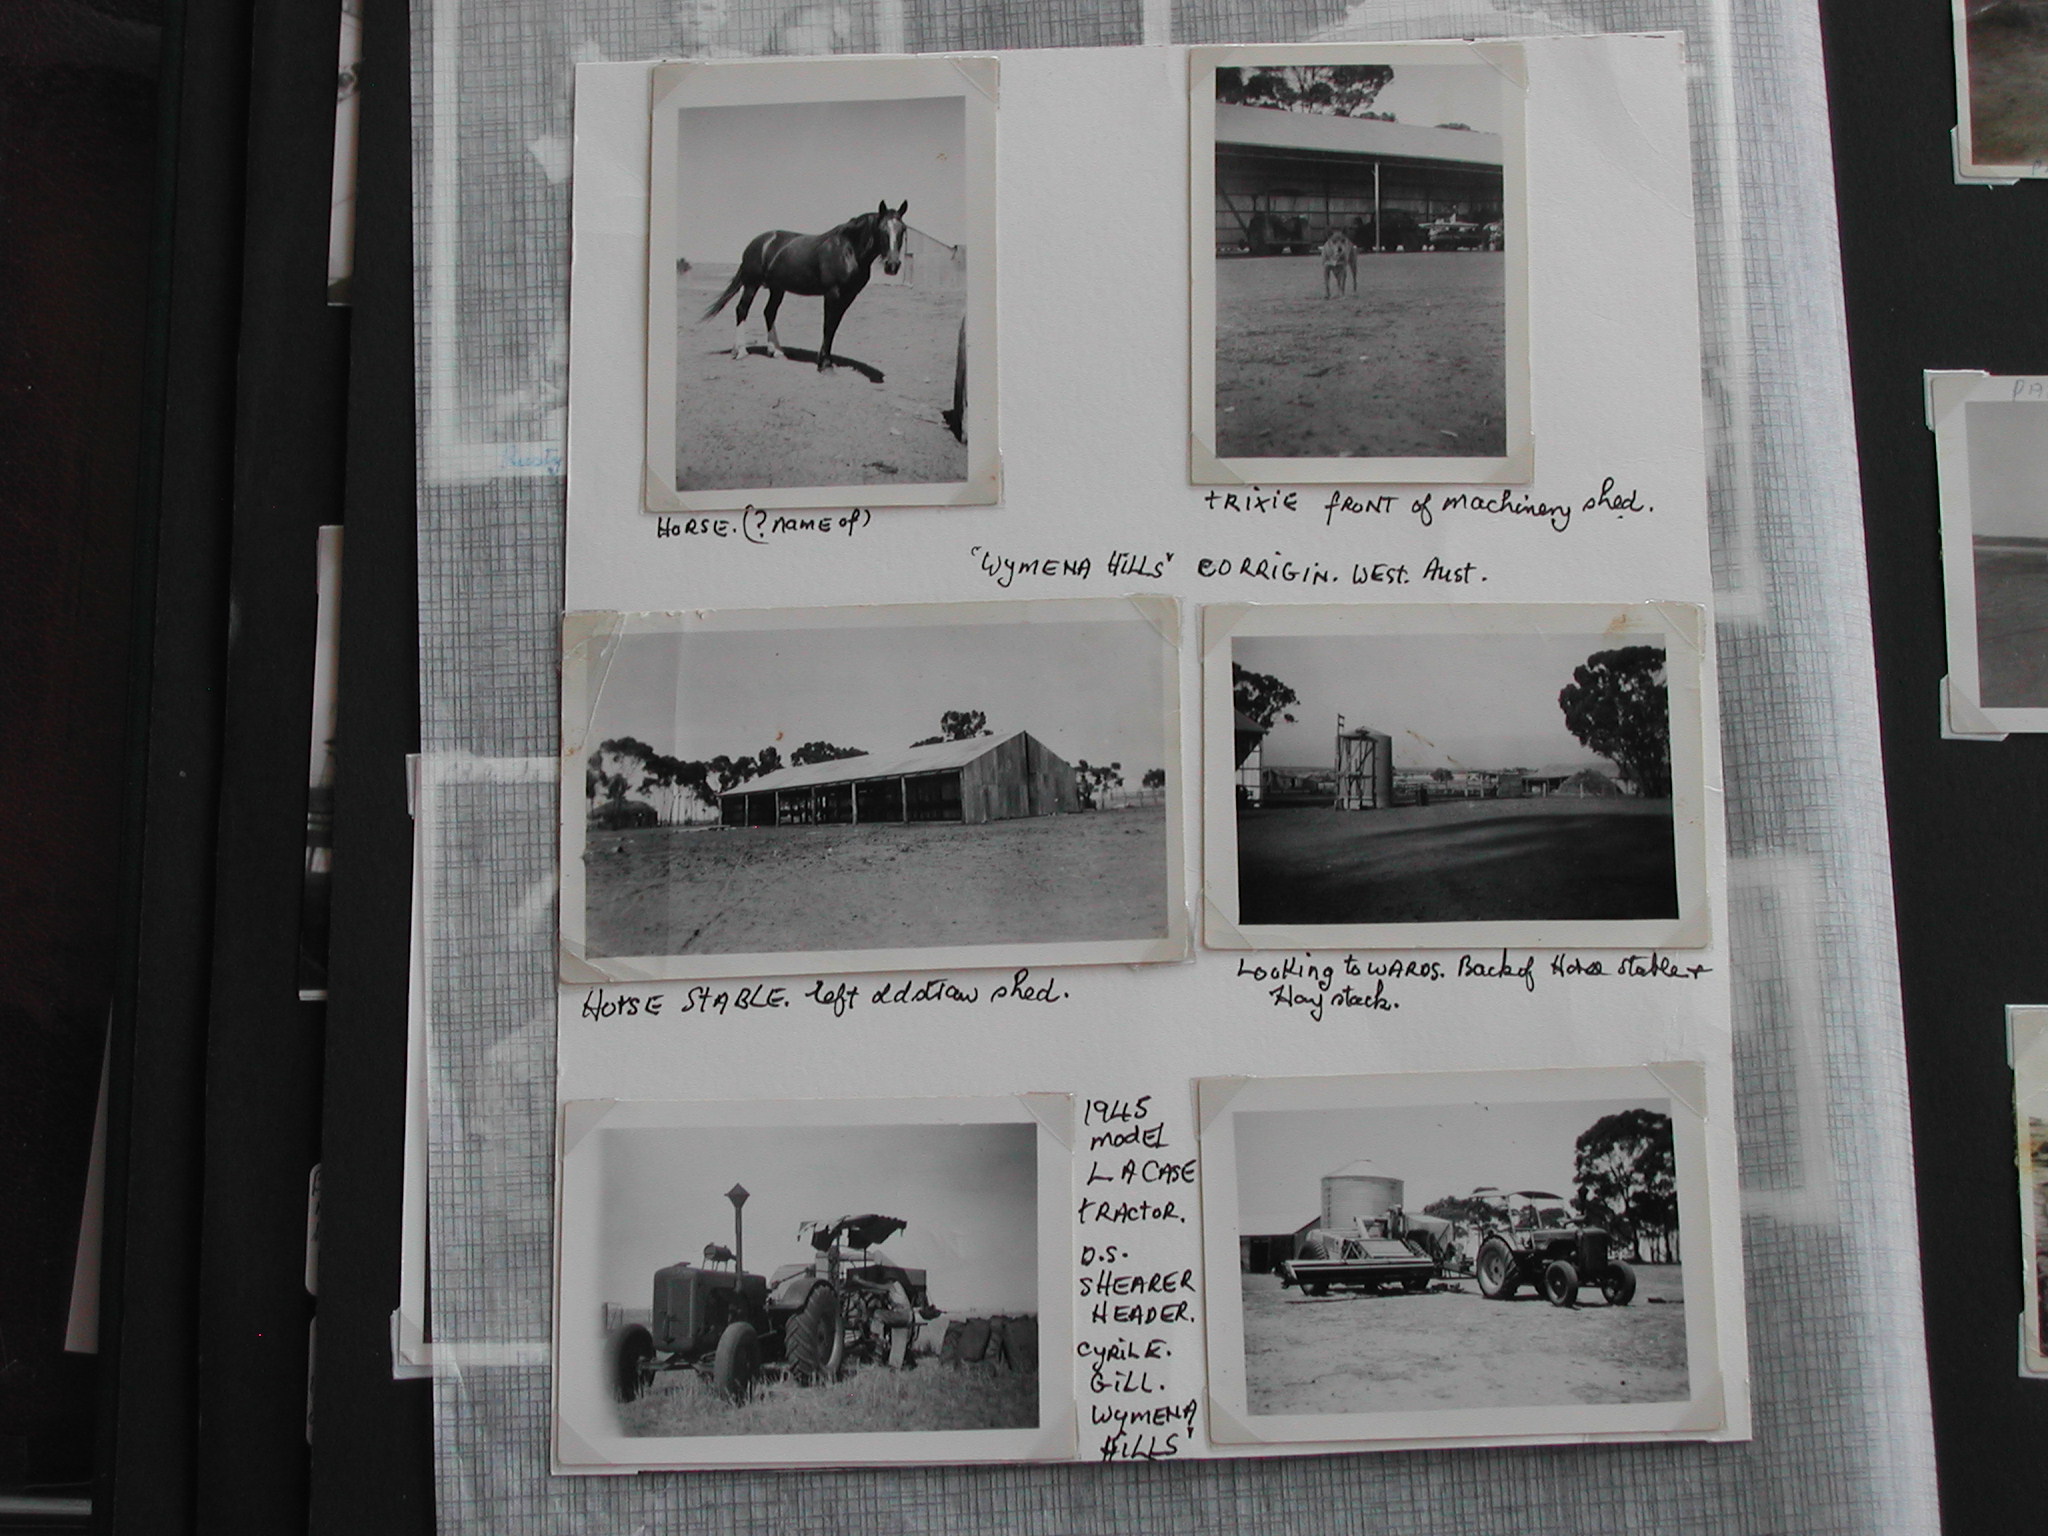 HORSE. (? NAME of)
tRiXiE fRONT of machinery shed.
"WyMENA HiLLS" CORRIGiN. WEST. AUST.
HORSE STABLE. left old straw shed.
Looking toWARDS. Back of Horse stable +
Hay stack.
1945
modEL
L A CASE
tRActoR.
D.S.
SHEARER
HEADER.
CyRiL E.
GiLL.
WyMENA
HiLLS"
Rusty
PA